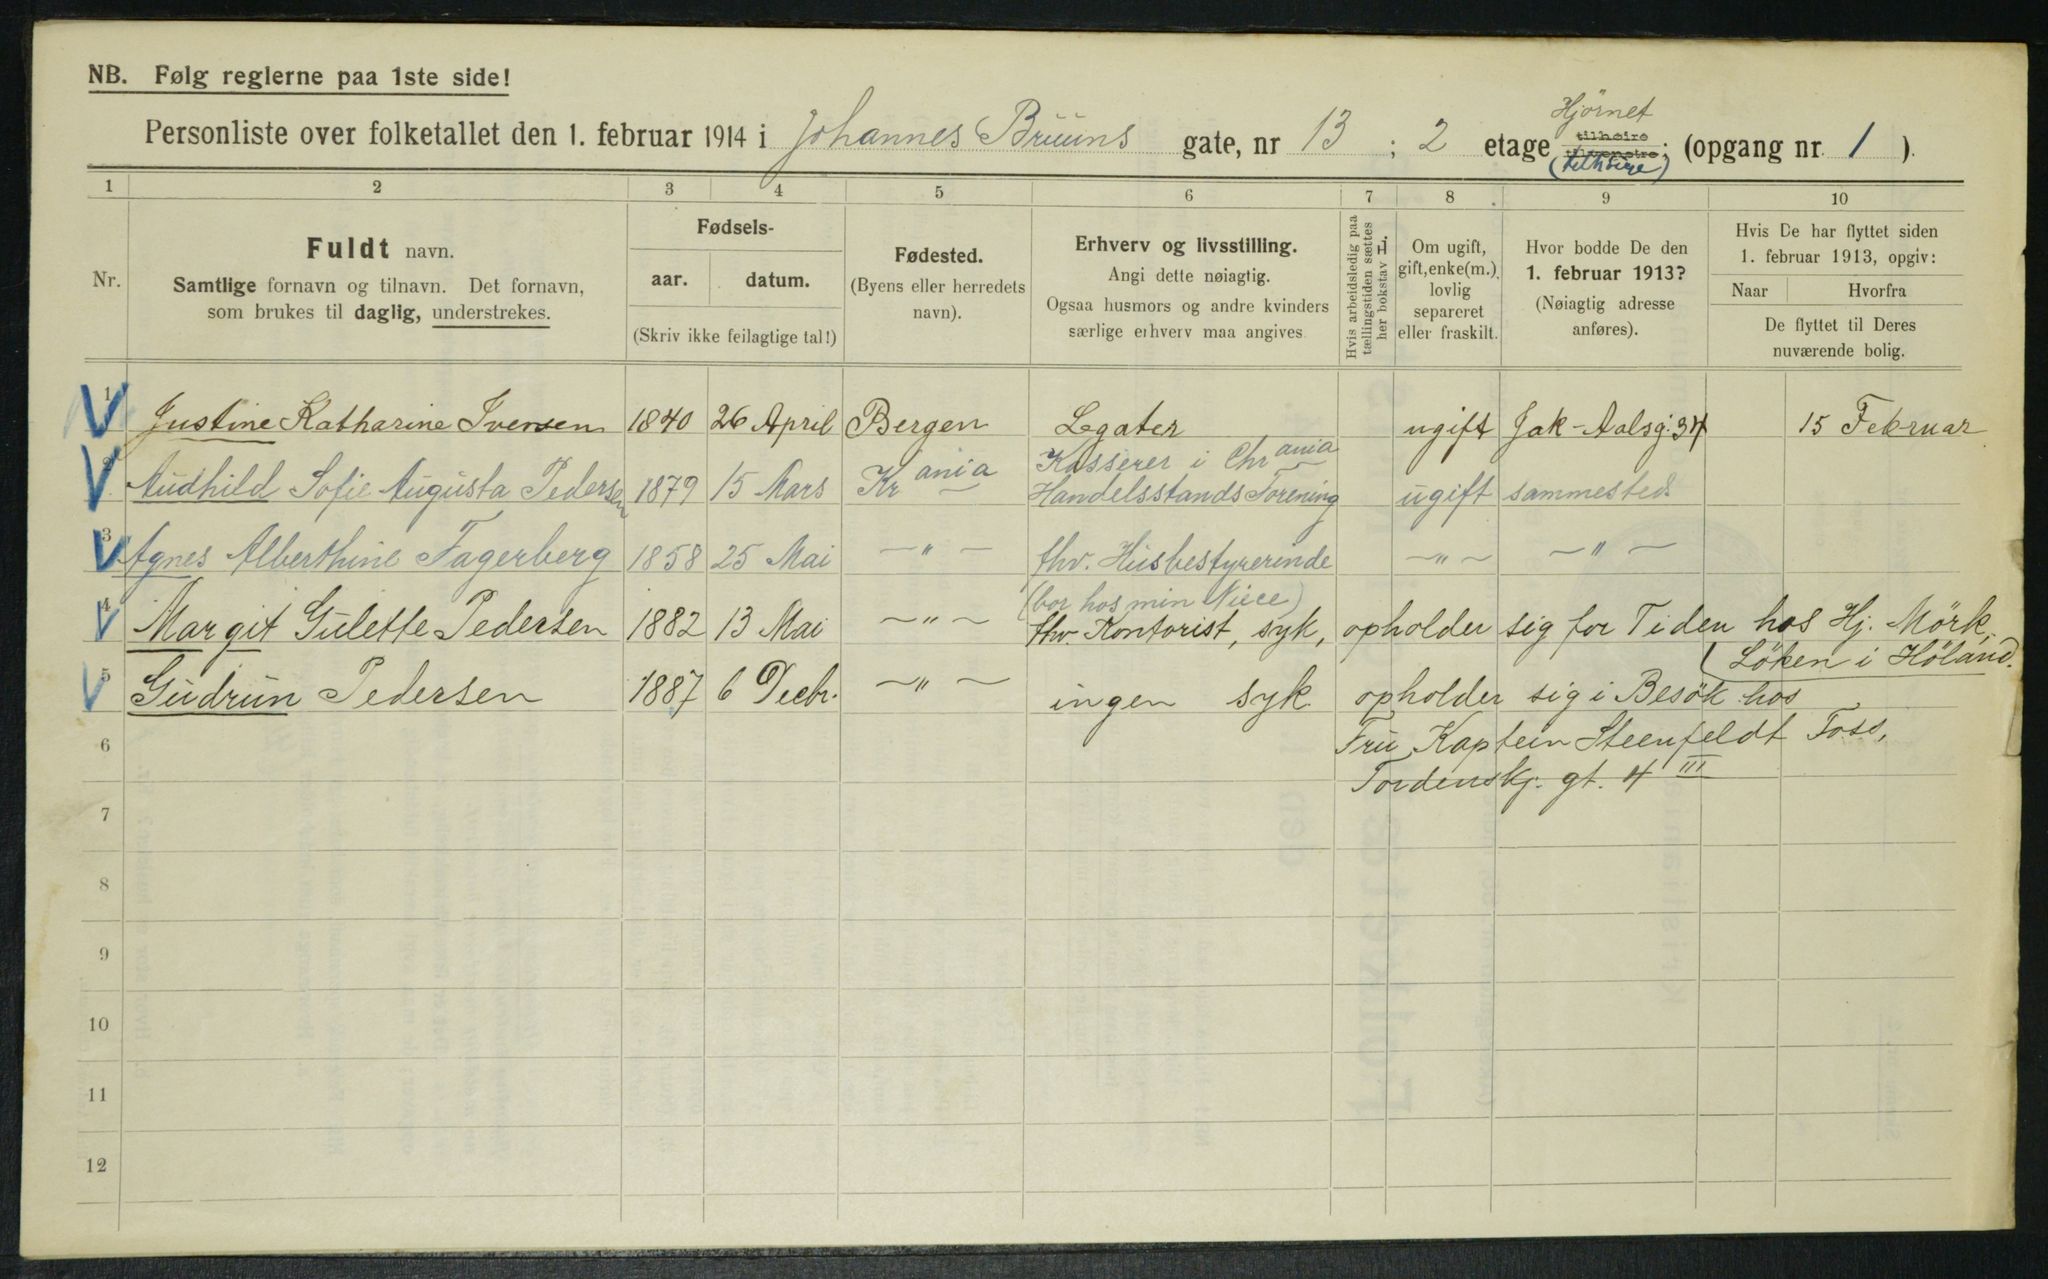 NB. Følg reglerne paa 1ste side!
Hjörnet
Personliste over folketallet den 1. februar 1914 i Johannes Bruuns gate, nr 13 ; 2 etage tilhøire tilvenstre; (opgang nr. 1 ).
(tilhöire)
1 2 3 4 5 6 7 8 9 10
Nr.
Fuldt navn.
Samtlige fornavn og tilnavn. Det fornavn,
som brukes til daglig, understrekes.
Fødsels-
aar. datum.
(Skriv ikke feilagtige tal!)
Fødested.
(Byens eller herredets
navn).
Erhverv og livsstilling.
Angi dette nøiagtig.
Ogsaa husmors og andre kvinders
særlige erhverv maa angives.
Hvis arbeidsledig paa
tællingstiden sættes
her bokstav L.
Om ugift,
gift, enke(m.),
lovlig
separeret
eller fraskilt.
Hvor bodde De den
1. februar 1913?
(Nøiagtig adresse
anføres).
Hvis De har flyttet siden
1. februar 1913, opgiv:
Naar Hvorfra
De flyttet til Deres
nuværende bolig.
1 Justine Katharine Iversen 1840 26 April Bergen Legater ugift Jak-Aalsg. 34 15 Februar
2 Audhild Sofie Augusta Pedersen 1879 15 Mars Krania Kasserer i Chrania
Handelsstands Forening ugift sammesteds
3 Agnes Alberthine Fagerberg 1858 25 Mai —"— fhv. Husbestyrerinde —"— —"—
(bor hos min Niece)
4 Margit Gulette Pedersen 1882 13 Mai —"— fhv. Kontorist, syk, opholder sig for Tiden hos Hj. Mörk,
(Löken i Höland.
5 Gudrun Pedersen 1887 6 Decbr. —"— ingen syk opholder sig i Besök hos
6 Fru Kaptein Steenfeldt Foss,
Tordenskj. gt. 4 III
7
8
9
10
11
12